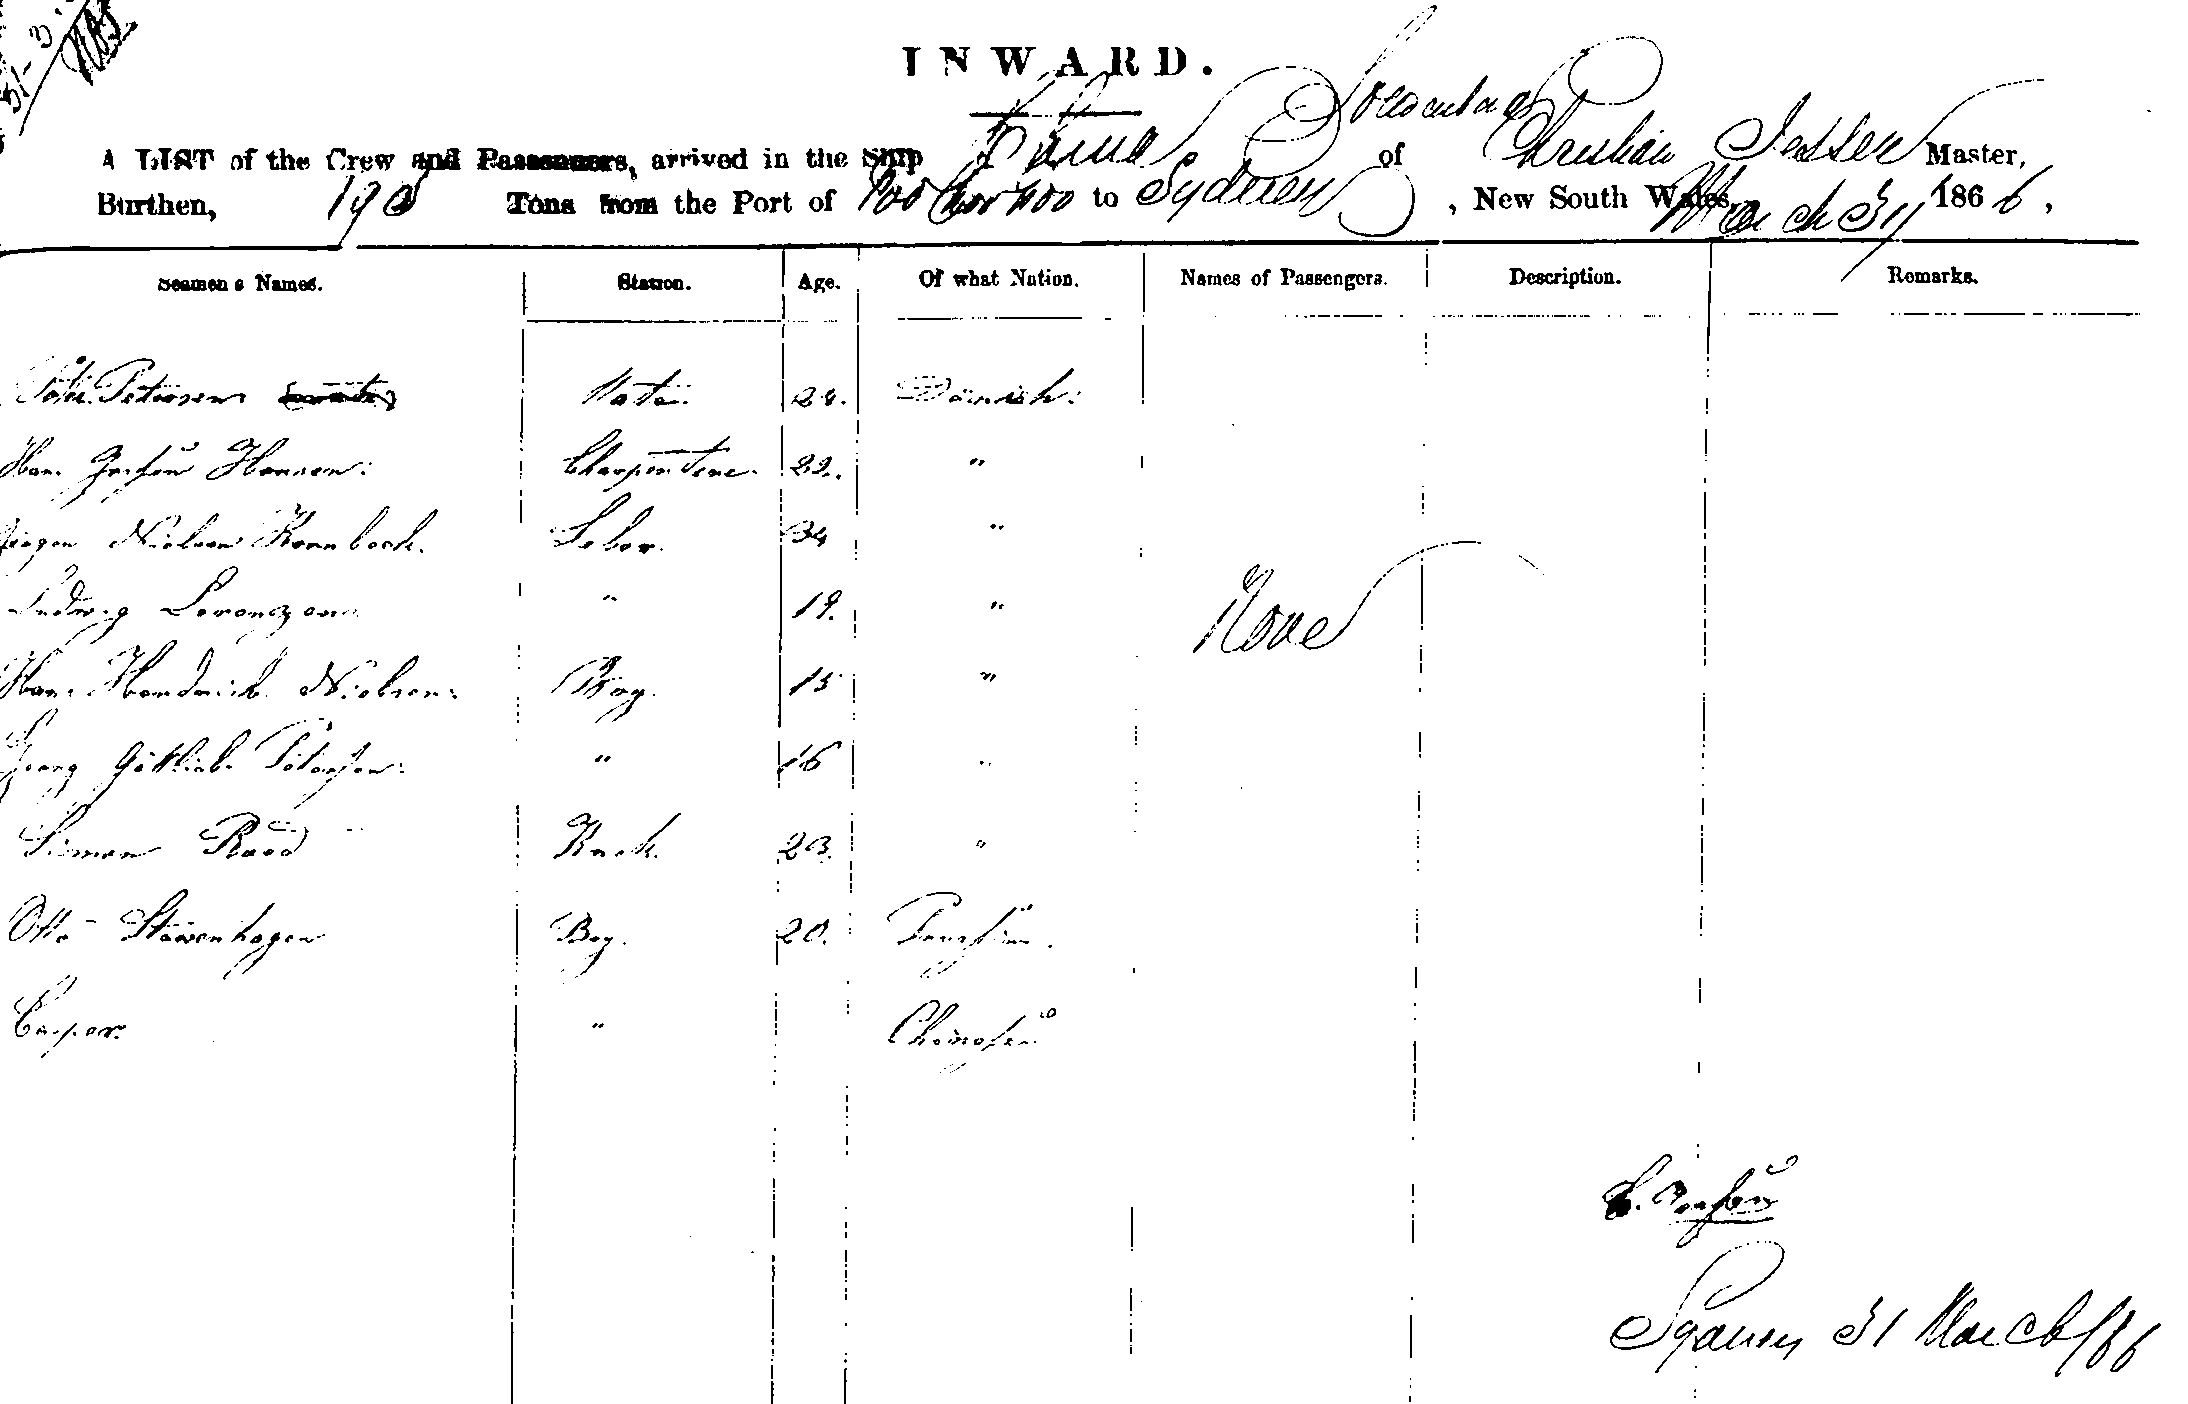 31-3
INWARD.
A LIST of the Crew and Passengers, arrived in the Ship of Christian Jessen Master,
Burthen, 198 Tons from the Port of Foo Chow Foo to Sydney, New South Wales, March 31 1866,
Seamen's Names. Station. Age. Of what Nation. Names of Passengers. Description. Remarks.
Peter Petersen Mate. 24. Dänish:
Hans Hansen: Charpentere. 22. "
Nielsen Kornbeck. Selor. 34 "
Ludwig Lorenzen " 19. " None
Hans Hendrick Nielsen: Boy. 15 "
Georg Gottlieb Petersen: " 16 "
Simon Kock. 23. "
Otto Stavenhagen Boy. 20.
Casper. "
C. Jessen
Sydney 31 March/66